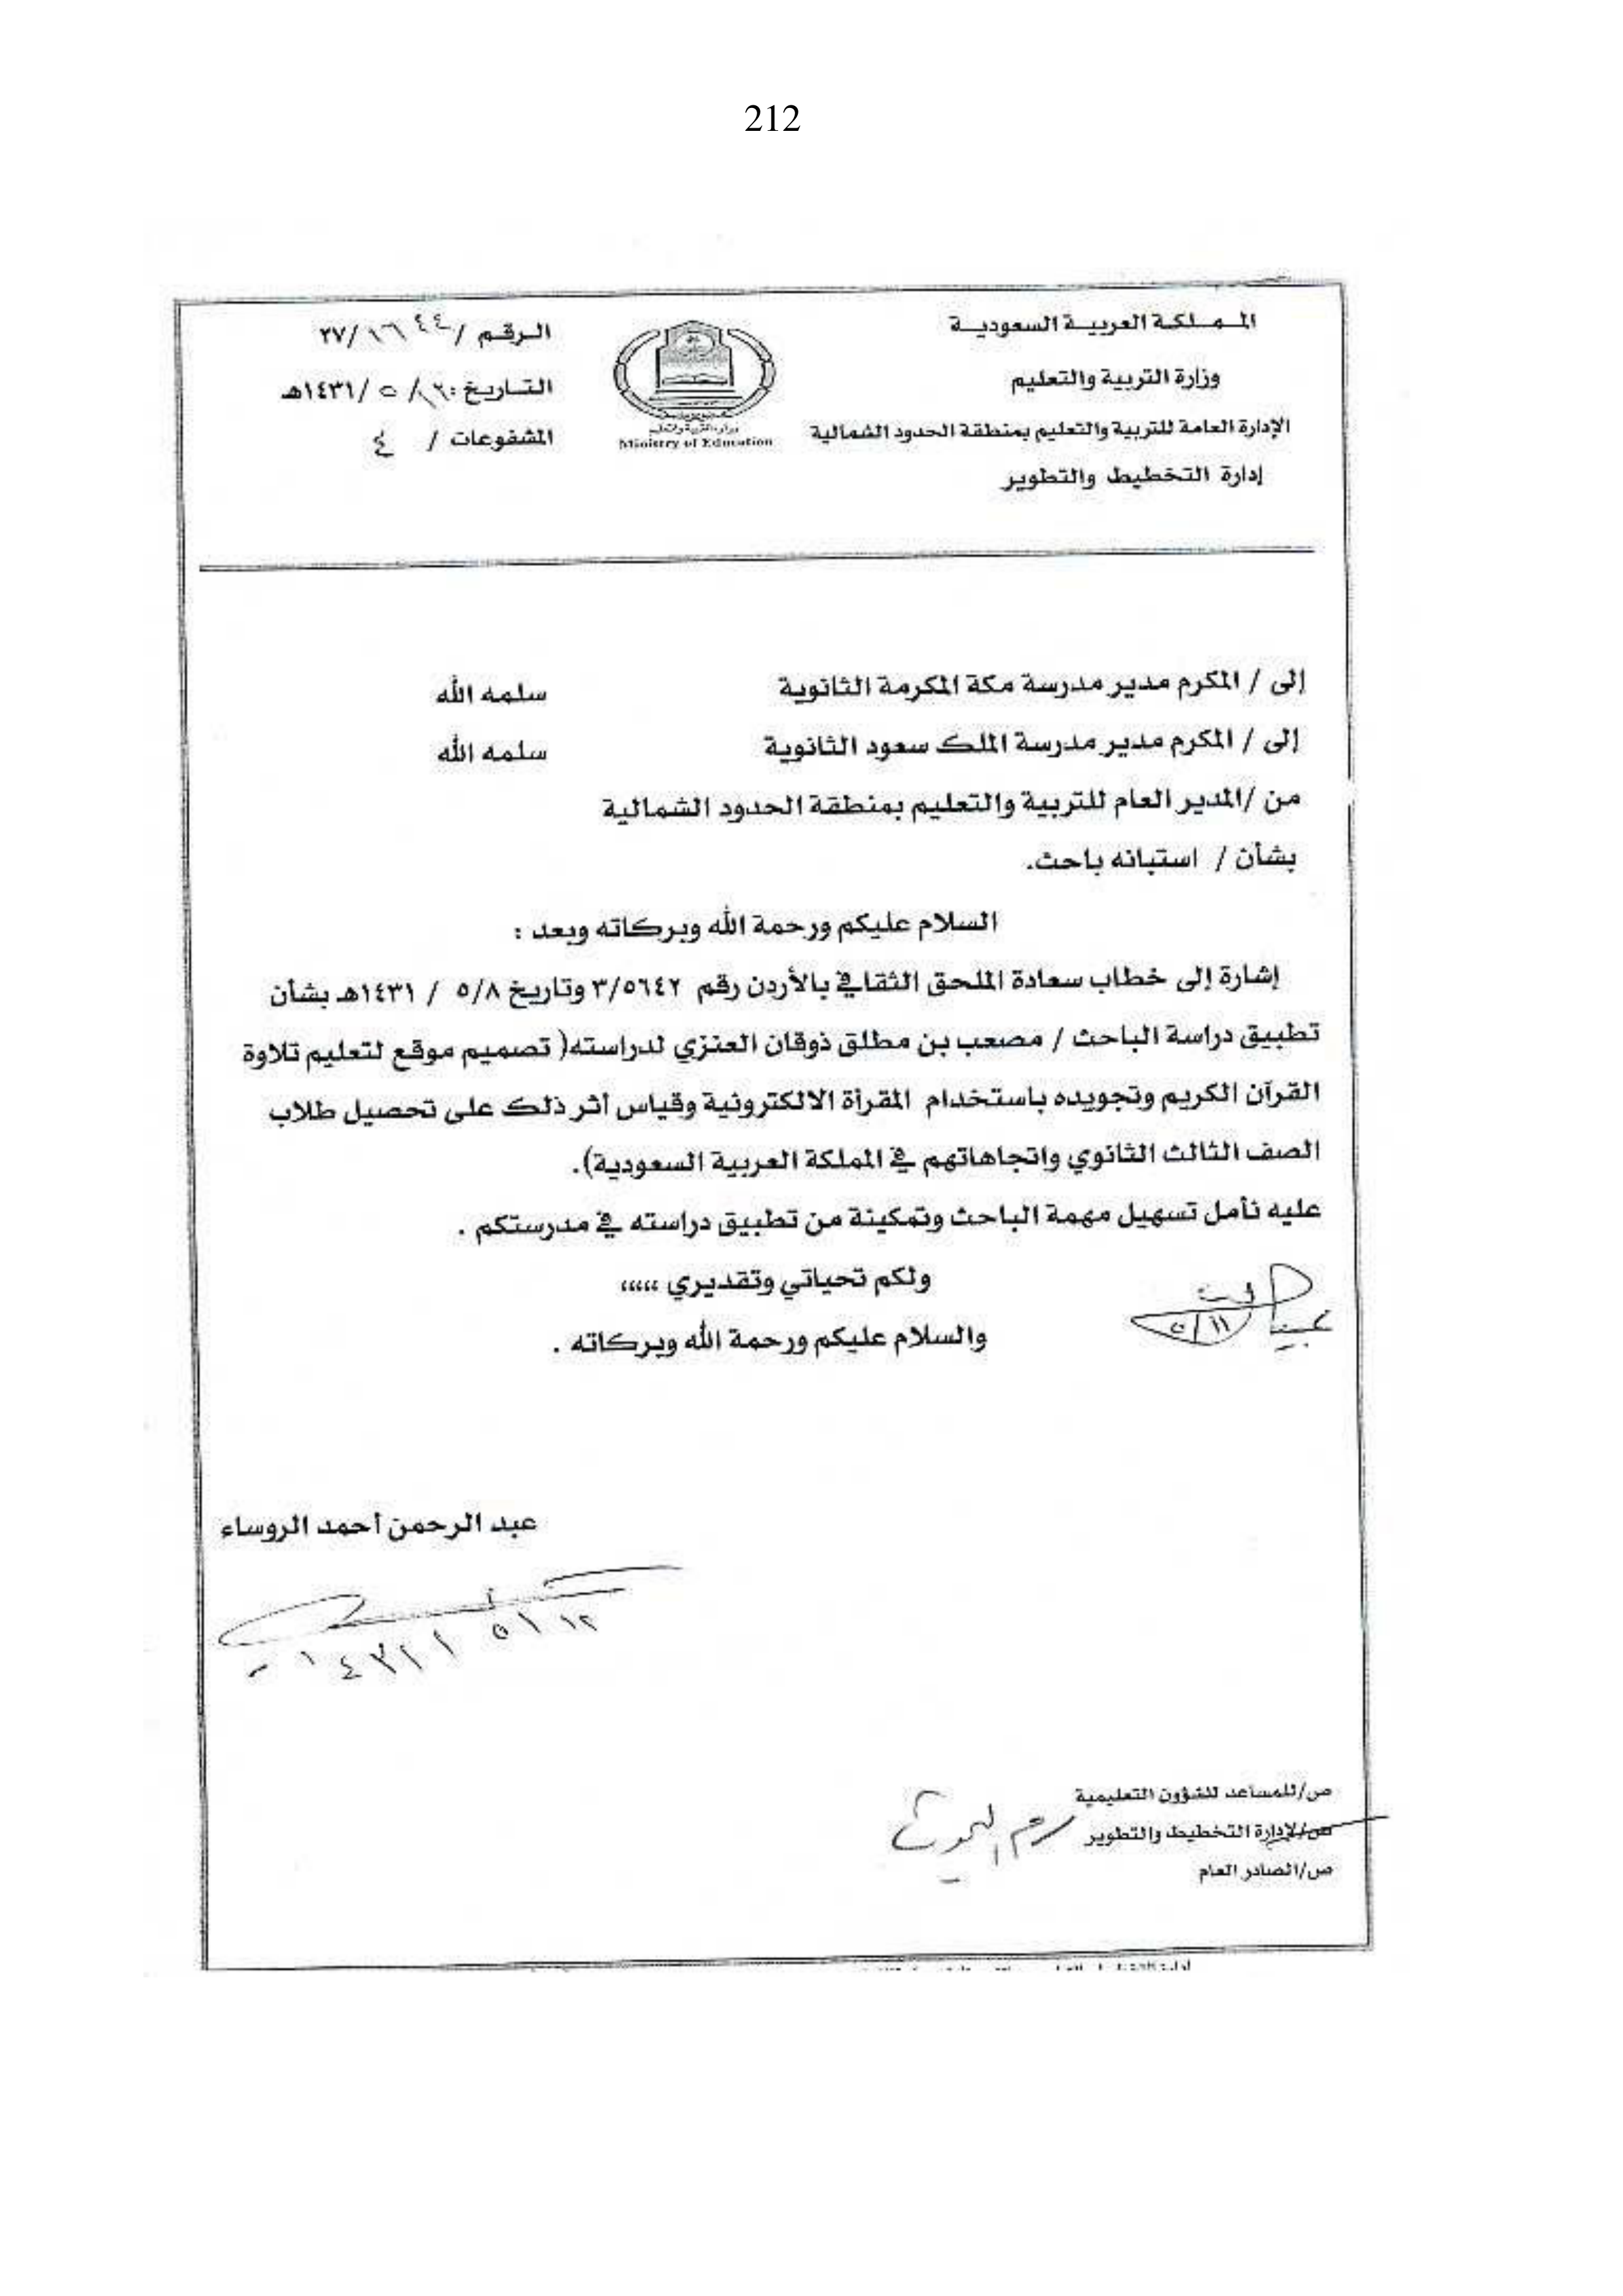 212
المملكة العربية السعودية
وزارة التربية والتعليم
الإدارة العامة للتربية والتعليم بمنطقة الحدود الشمالية
إدارة التخطيط والتطوير
وزارة التربية والتعليم
Ministry of Education
الرقم / ٣٧/١٦٤٤
التاريخ: / ٥ /١٤٣١هـ
المشفوعات / ٤
إلى / المكرم مدير مدرسة مكة المكرمة الثانوية سلمه الله
إلى / المكرم مدير مدرسة الملك سعود الثانوية سلمه الله
من /المدير العام للتربية والتعليم بمنطقة الحدود الشمالية
بشأن / استبانه باحث.
السلام عليكم ورحمة الله وبركاته وبعد :
إشارة إلى خطاب سعادة الملحق الثقافي بالأردن رقم ٣/٥٦٤٢ وتاريخ ٥/٨ / ١٤٣١هـ بشأن
تطبيق دراسة الباحث / مصعب بن مطلق ذوقان العنزي لدراسته( تصميم موقع لتعليم تلاوة
القرآن الكريم وتجويده باستخدام المقرأة الالكترونية وقياس أثر ذلك على تحصيل طلاب
الصف الثالث الثانوي واتجاهاتهم في المملكة العربية السعودية).
عليه نأمل تسهيل مهمة الباحث وتمكينة من تطبيق دراسته في مدرستكم .
ولكم تحياتي وتقديري ،،،،،
والسلام عليكم ورحمة الله وبركاته .
٥/١١
عبد الرحمن أحمد الروساء
ص/للمساعد للشؤون التعليمية
ص/لإدارة التخطيط والتطوير
ص/الصادر العام